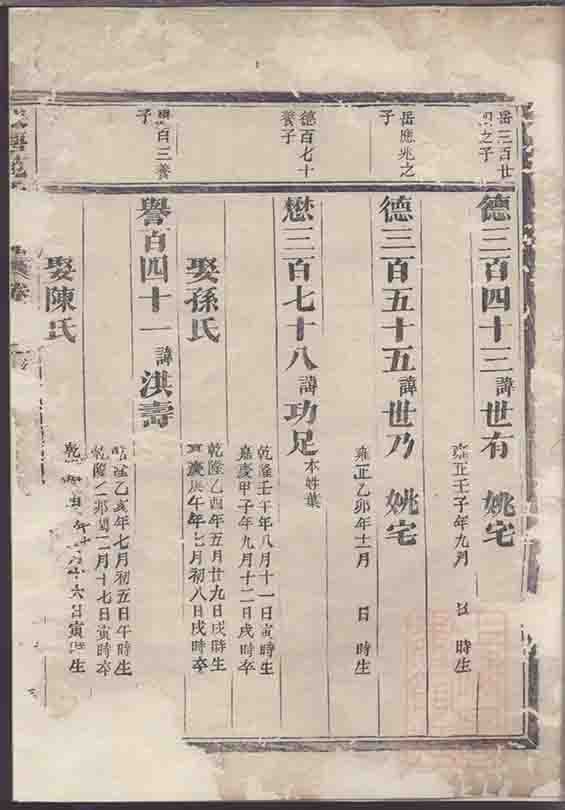 岳三百廿
之子
德三百四十三諱世有 姚宅
雍正壬子年九月 日 時生
岳應兆之
子
德三百五十五諱世乃 姚宅
雍正乙卯年十二月 日 時生
德百七十
養子
懋三百七十八諱功足本姓葉
乾隆壬午年八月十一日寅時生
嘉慶甲子年九月十二日戌時卒
娶孫氏
乾隆乙酉年五月廿九日戌時生
嘉慶庚午年七月初八日戌時卒
百三養
子
譽百四十一諱洪壽
乙亥年七月初五日午時生
乾隆 卯閏二月十七日寅時卒
娶陳氏
乾 年 六日寅 生
卷